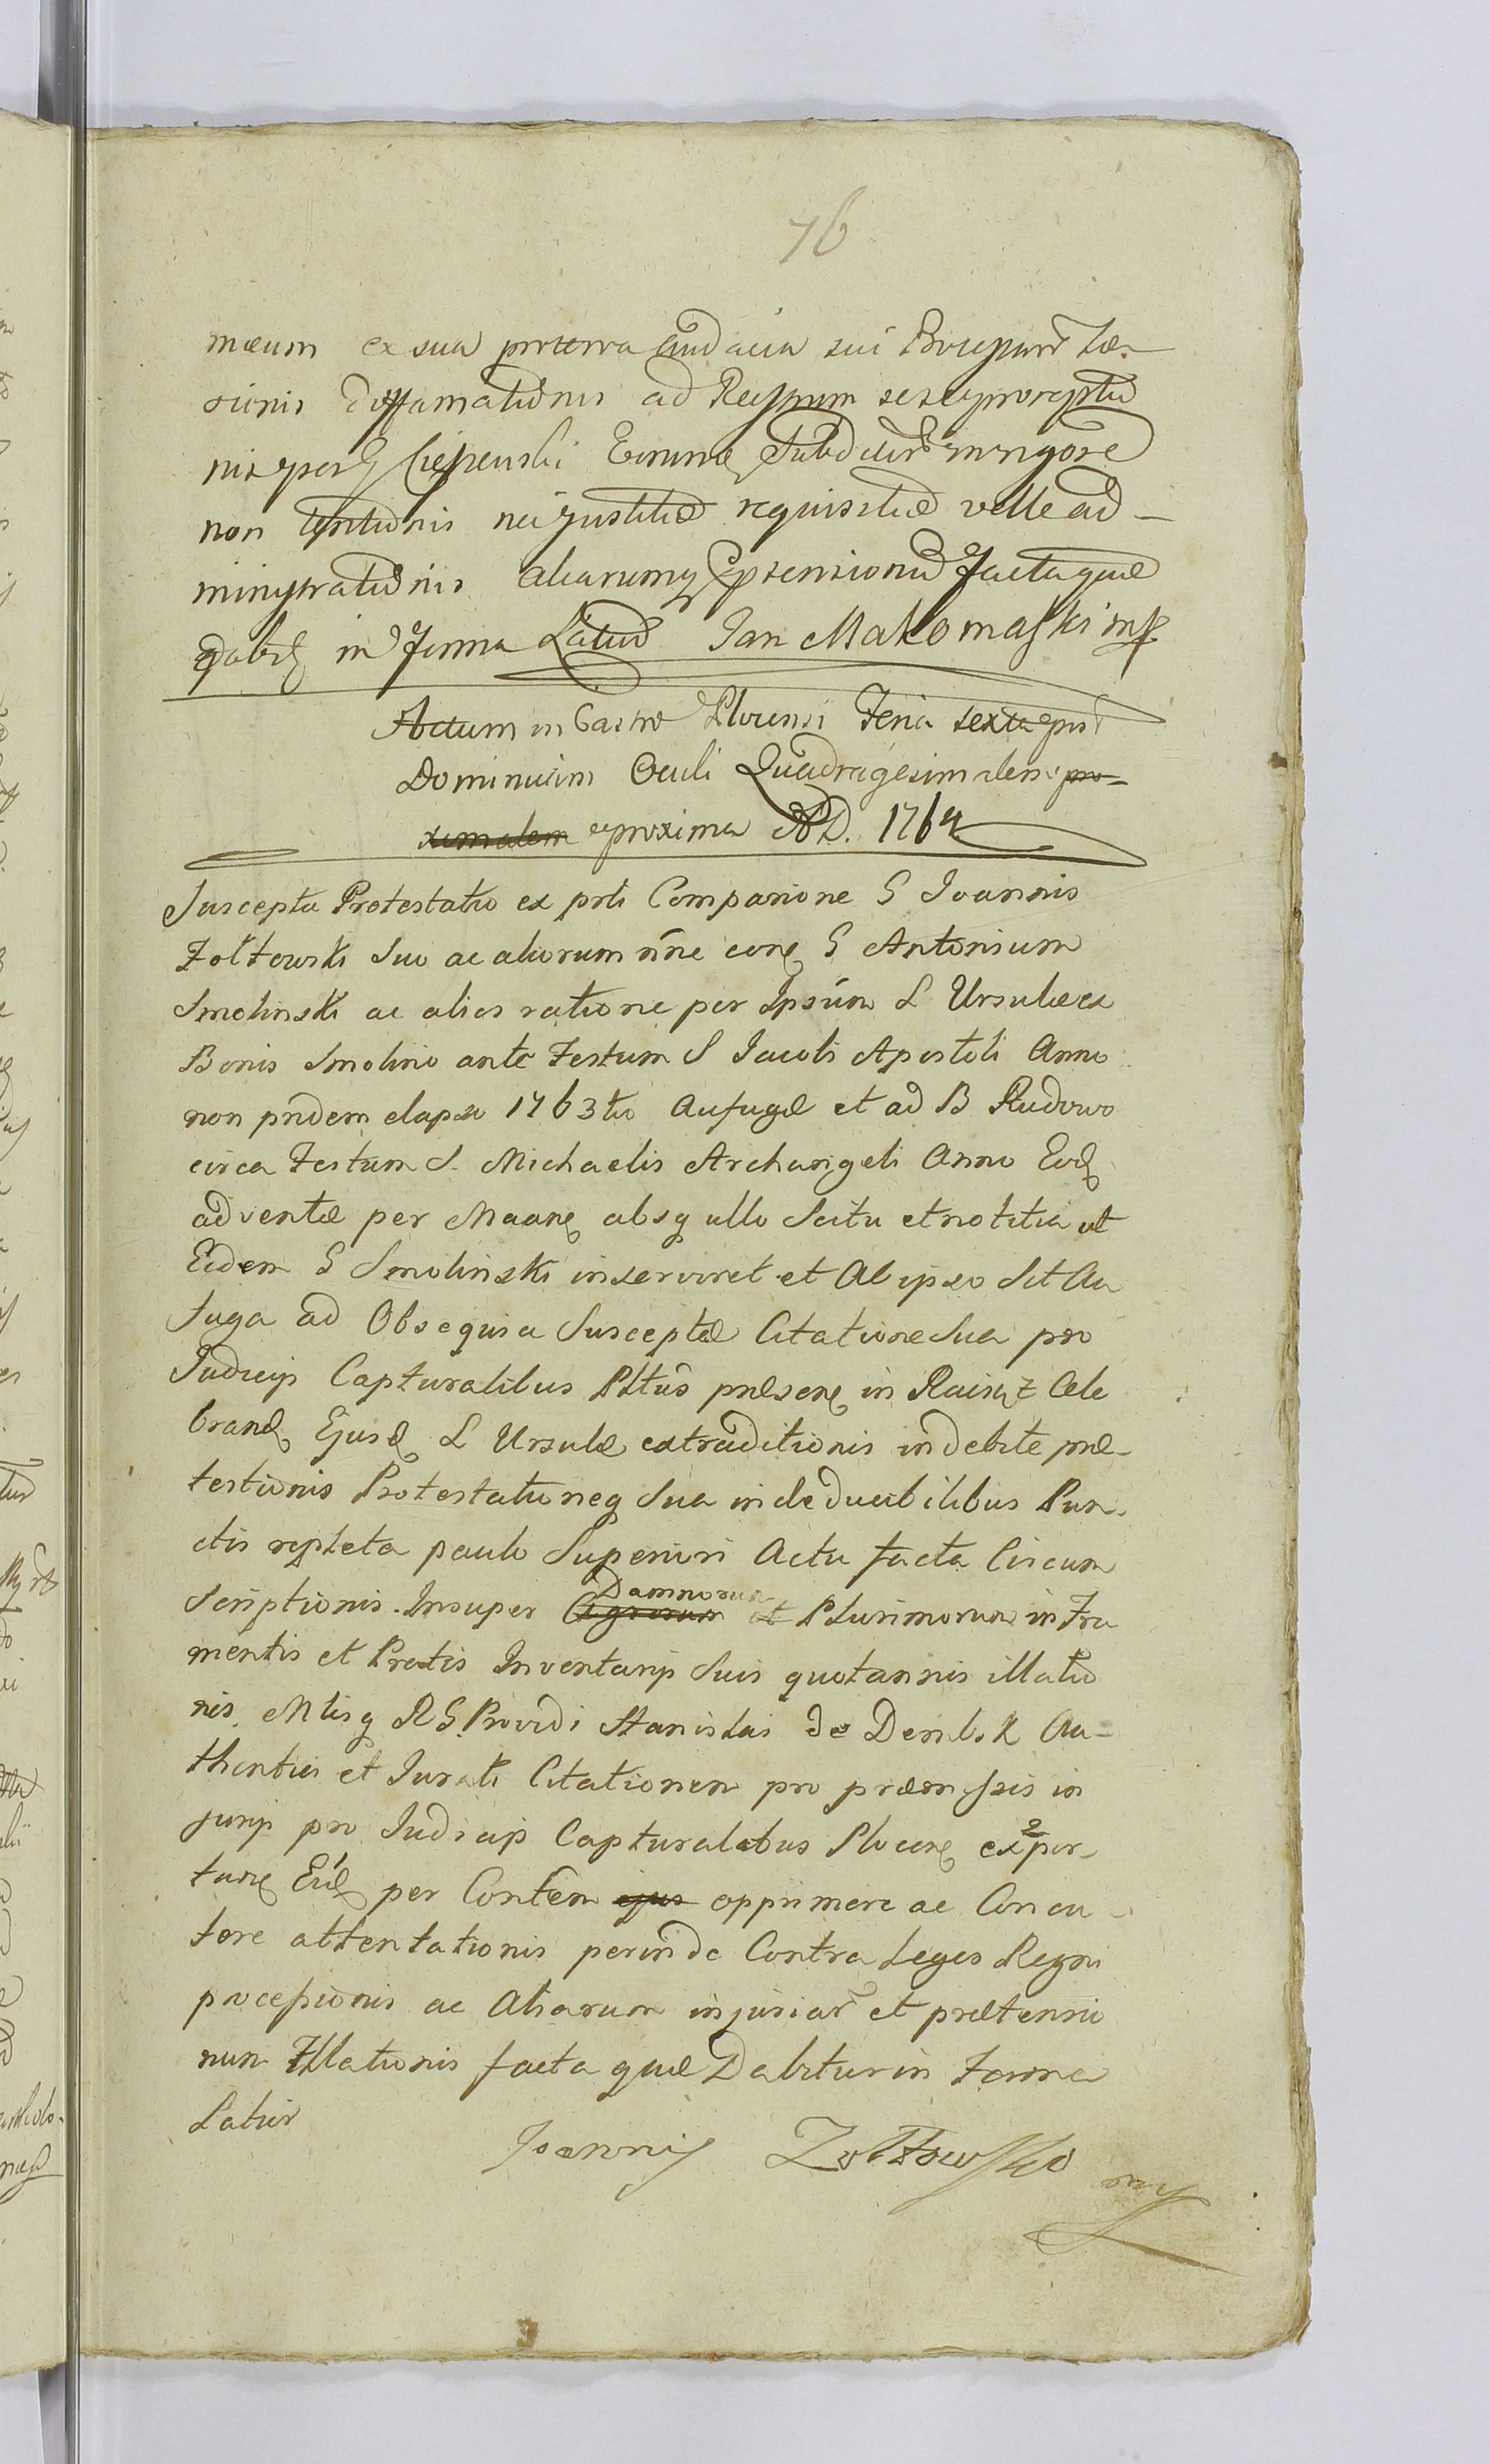 76
mæum ex sua proterva audacia sui
sionis diffamationis ad
Ciepenski
non tentionis nec justitiæ requisitæ velle ad-
ministrationis aliarumq ptensionū factaquæ
dabit in Forma Latiū Jan Makomaski mp
Actum in Castro Plocensi Feria sexta post
Dominicam Oculi Quadragesimalem pro-
ximalem proxima AD. 1764
Suscepta Protestatio ex prti Comparione G Joannis
Zołtowski Suo ac aliorum nĩne con G Antonium
Smolinski ac alios ratione per Ipsūm L Ursulæ ex
Bonis Smolino ante Festum S Jacobi Apostoli Anno
non pridem elapso 1763tio Aufugæ et ad B Rudowo
circa Festum S. Michaelis Archangeli Anno Eod
adventæ per Maan absq ullo Scitu et notitia ut
Eidem G Smolinski inserviret et Ab ipso Sit Au
fuga ad Obsequia Susceptæ Citatione Sua pro
Judicijs Capturalibus Pltūs præsen in Raciąz Cele
brand Ejusd L Ursulæ extraditionis indebite præ-
tentionis Protestationeq Sua in deducibilibus Pun-
ctis repleta paulo Superiori Actu facta Circum
Scriptionis. Insuper Agrorum Damnorum et Plurimorum in Fru
mentis et Pratis Inventarijs Suis quotannis illatio
nis. Mlisq RG Providi Stanislai de Dembsk Au-
thentici et Jurati Citationem pro præmissis in
jurijs pro Judicijs Capturalibus Plocen ex 2 por-
tan Eid per Contem ejus opprimere ac Concu-
tere attentationis perinde Contra Leges Regni
processionis ac Aliarum injuriar et prætensio
num Illationis facta quæ Dabitur in Forma
Latior
Joannis Zołtowski mp